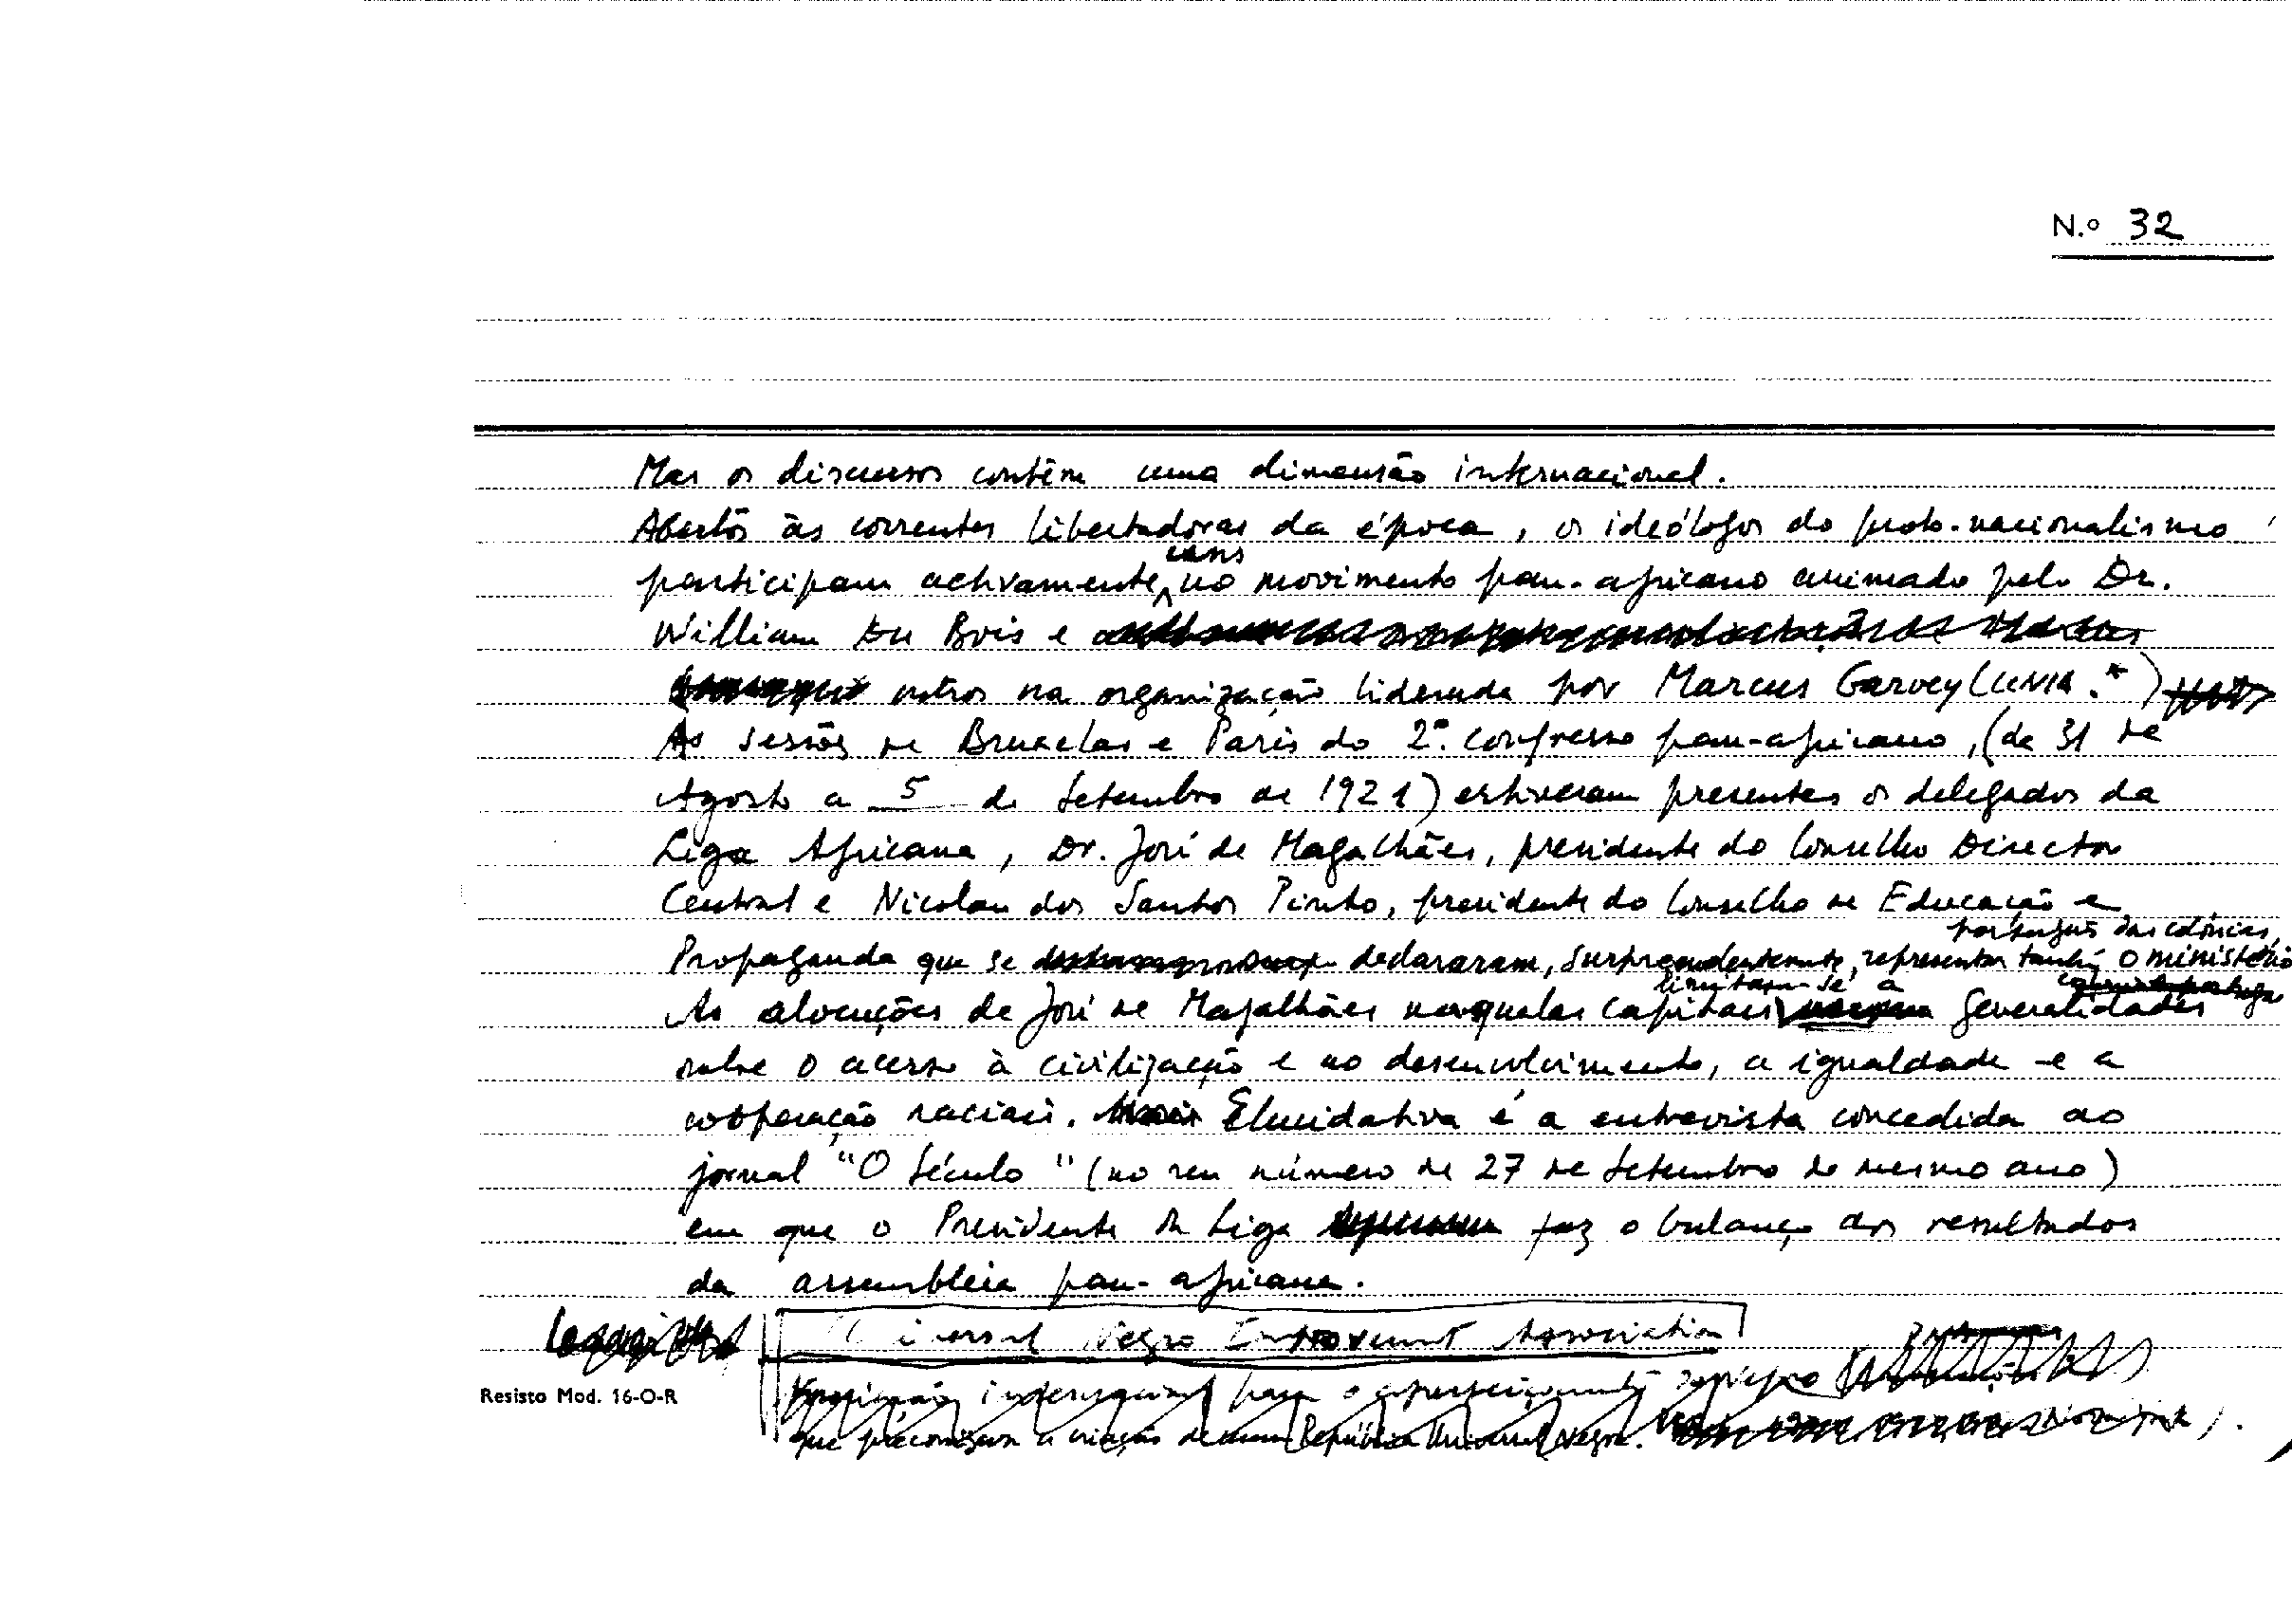 N.º 32
Mas os discursos contêm uma dimensão internacional.
Abertos às correntes libertadoras da época, os ideólogos do proto-nacionalismo
participam activamente, uns no movimento pan-africano animado pelo Dr.
William Du Bois e
outros na organização liderada por Marcus Garvey (UNIA.*)
As sessões de Bruxelas e Paris do 2º. congresso pan-africano, (de 31 de
Agosto a 5 de Setembro de 1921) estiveram presentes os delegados da
Liga Africana, Dr. José de Magalhães, presidente do Conselho Director
Central e Nicolau dos Santos Pinto, presidente do Conselho de Educação e
português das colónias,
Propaganda que se declararam, surpreendentemente, representar também o ministério
limitam-se a
As alocuções de José de Magalhães naquelas capitais generalidades
sobre o acesso à civilização e ao desenvolvimento, a igualdade e a
cooperação raciais. Elucidativa é a entrevista concedida ao
jornal "O Século" (no seu número de 27 de Setembro do mesmo ano)
em que o Presidente da Liga faz o balanço dos resultados
da assembleia pan-africana.
Universal Negro Improvement Association
Resisto Mod. 16-O-R
que preconizava a criação de uma República Universal Negra.